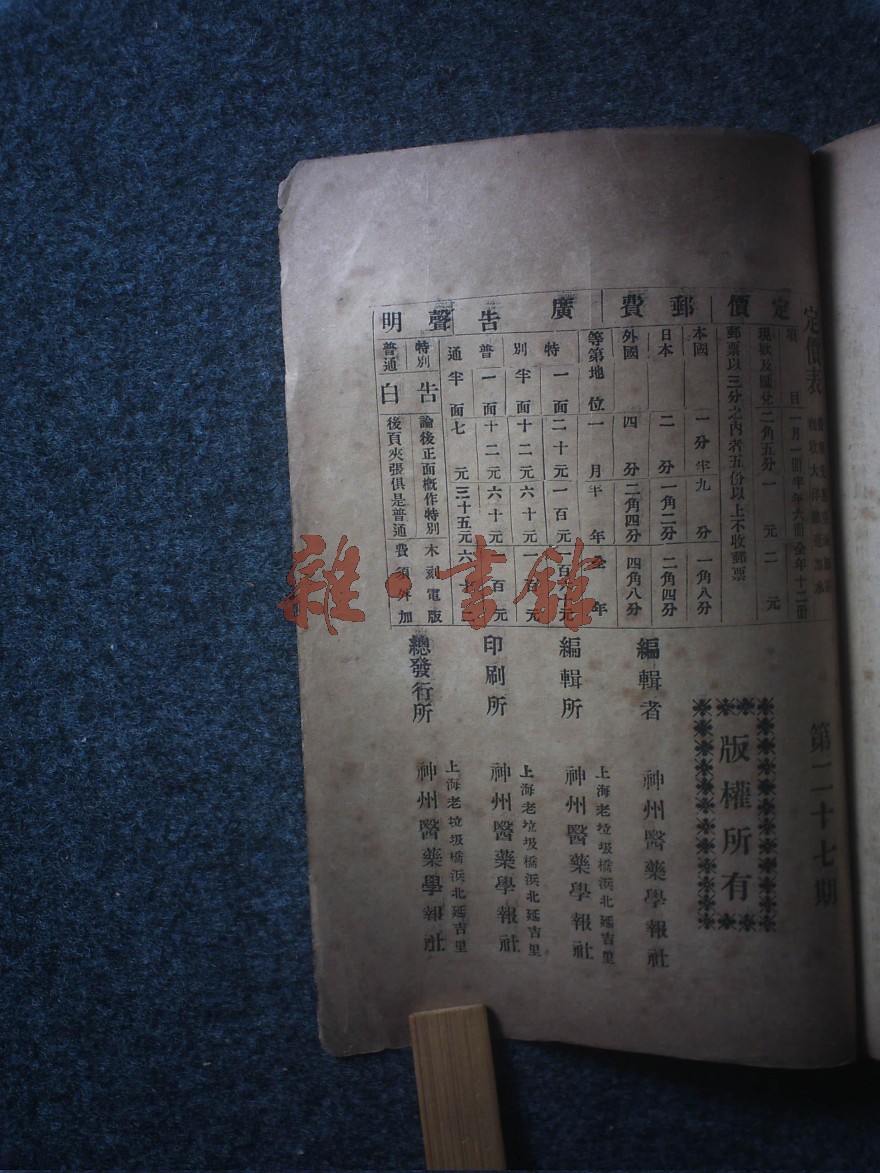 定價表
第二十七期
定價
郵費
廣告
聲明
項目 一月一冊 半年六冊 全年十二冊
現欵及匯兌 二角五分 一元 二元
郵票以三分之內者五份以上不收郵票
本國 一分半 九分 一角八分
日本 二分 一角二分 二角四分
外國 四分 二角四分 四角八分
等第 地位 一月 半年 全年
特別 一面 二十元 一百元
半面 十二元 六十元 一百元
普通 一面 十二元 六十元 一百元
半面 七元 三十五元
特別 普通
告白
論後正面概作特別
後頁夾張俱是普通
木刻電版
費須外加
版權所有
編輯者 神州醫藥學報社
編輯所 上海老垃圾橋浜北延吉里
神州醫藥學報社
印刷所 上海老垃圾橋浜北延吉里
神州醫藥學報社
總發行所 上海老垃圾橋浜北延吉里
神州醫藥學報社
雜·書館